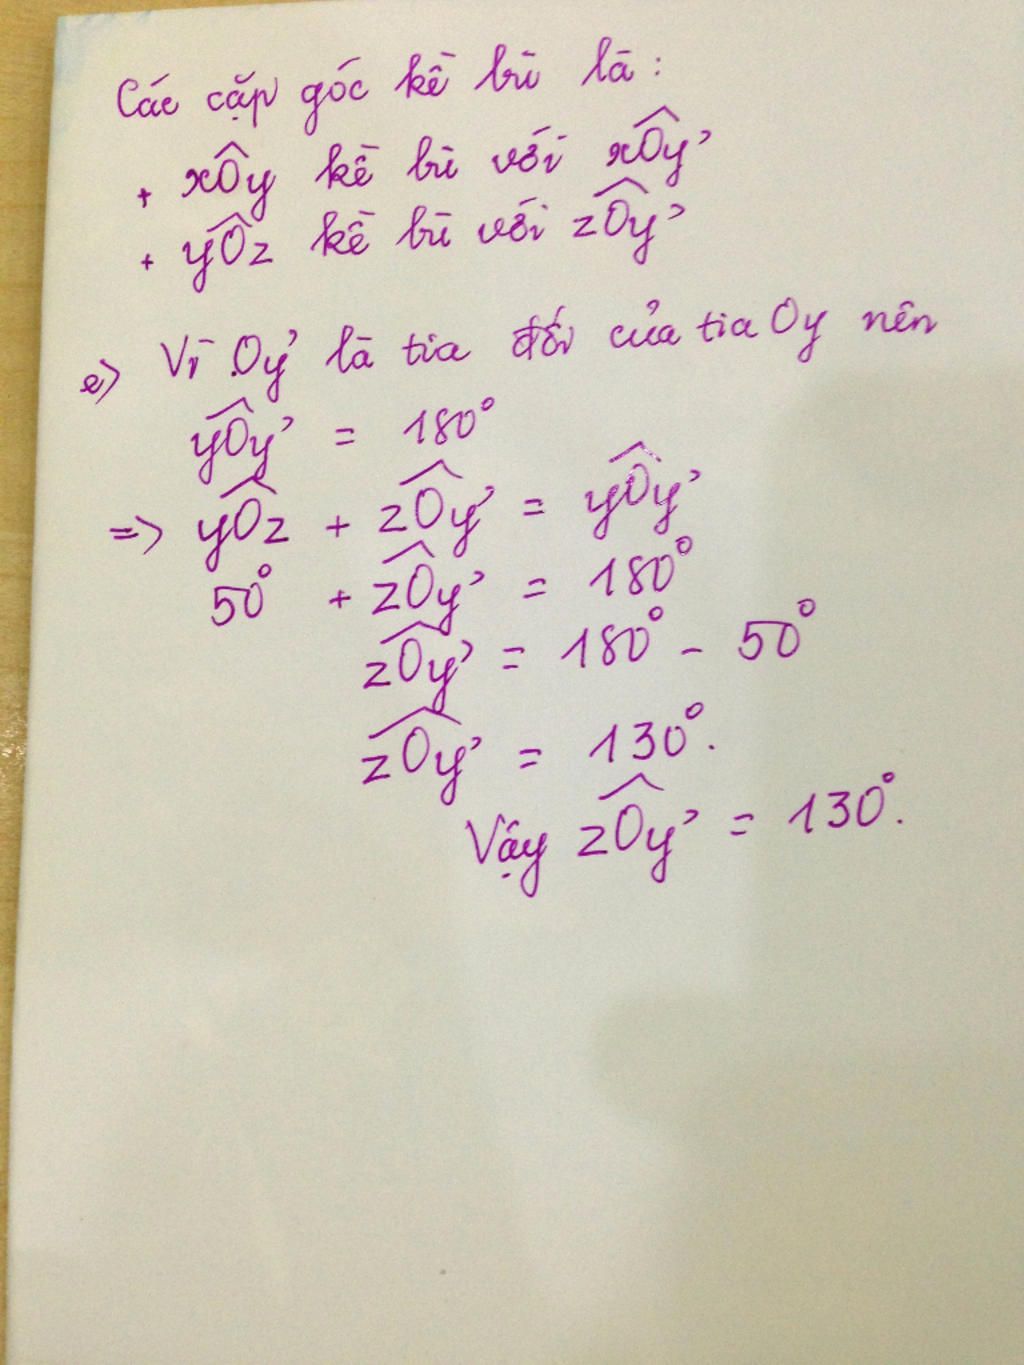 Các cặp góc kề bù là:
+ xÔy kề bù với xÔy'
+ yÔz kề bù với zÔy'
e) Vì Oy' là tia đối của tia Oy nên
yÔy' = 180°
=> yÔz + zÔy' = yÔy'
50° + zÔy' = 180°
zÔy' = 180° - 50°
zÔy' = 130°.
Vậy zÔy' = 130°.